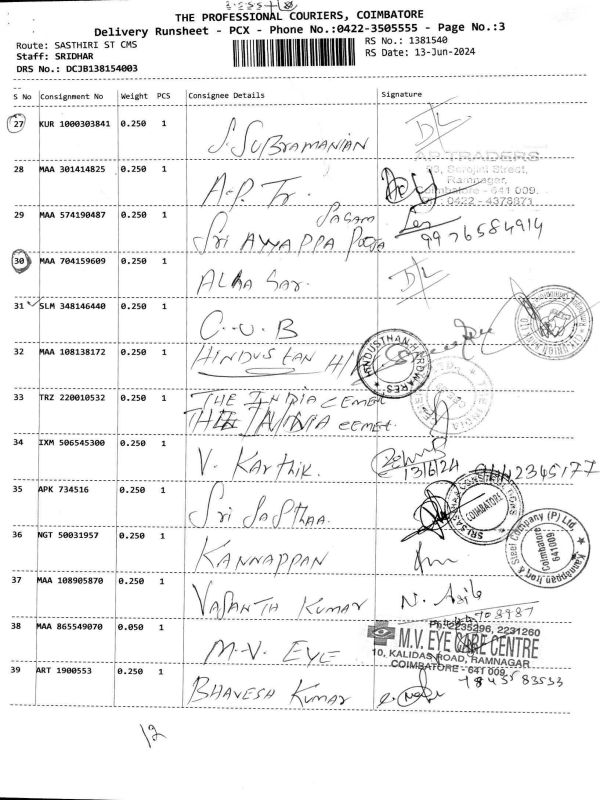 THE PROFESSIONAL COURIERS, COIMBATORE
Delivery Runsheet - PCX - Phone No.:0422-3505555 - Page No.:3
Route: SASTHIRI ST CMS RS No.: 1381540
Staff: SRIDHAR RS Date: 13-Jun-2024
DRS No.: DCJB138154003
S No Consignment No Weight PCS Consignee Details Signature
27 KUR 1000303841 0.250 1 S. SUBRAMANIAN D/L
28 MAA 301414825 0.250 1 A.P. Tr.
A.P. TRADERS
Sarojini Street,
Ramnagar,
Coimbatore - 641 009.
0422 - 4376871
29 MAA 574190487 0.250 1 Sri AYYAPPA POOJA PASAM 9976584914
30 MAA 704159609 0.250 1 D/L
31 SLM 348146440 0.250 1 C.U.B
32 MAA 108138172 0.250 1 HINDUSTAN H/W
HINDUSTHAN HARDWARES
33 TRZ 220010532 0.250 1 THE INDIA CEMENT
THE INDIA CEEMET.
34 IXM 506545300 0.250 1 V. Karthik. 13/6/24 9442345177
35 APK 734516 0.250 1 Sri Sasthaa.
COIMBATORE
36 NGT 50031957 0.250 1 KANNAPPAN
Kannappan Iron & Steel Company (P) Ltd.
Coimbatore
641009
37 MAA 108905870 0.250 1 VASANTH KUMAR
38 MAA 865549070 0.050 1 M.V. EYE
Ph: 2235296, 2231260
M.V. EYE CARE CENTRE
10, KALIDAS ROAD, RAMNAGAR
COIMBATORE - 641 009.
39 ART 1900553 0.250 1 BHAVESH KUMAR
12